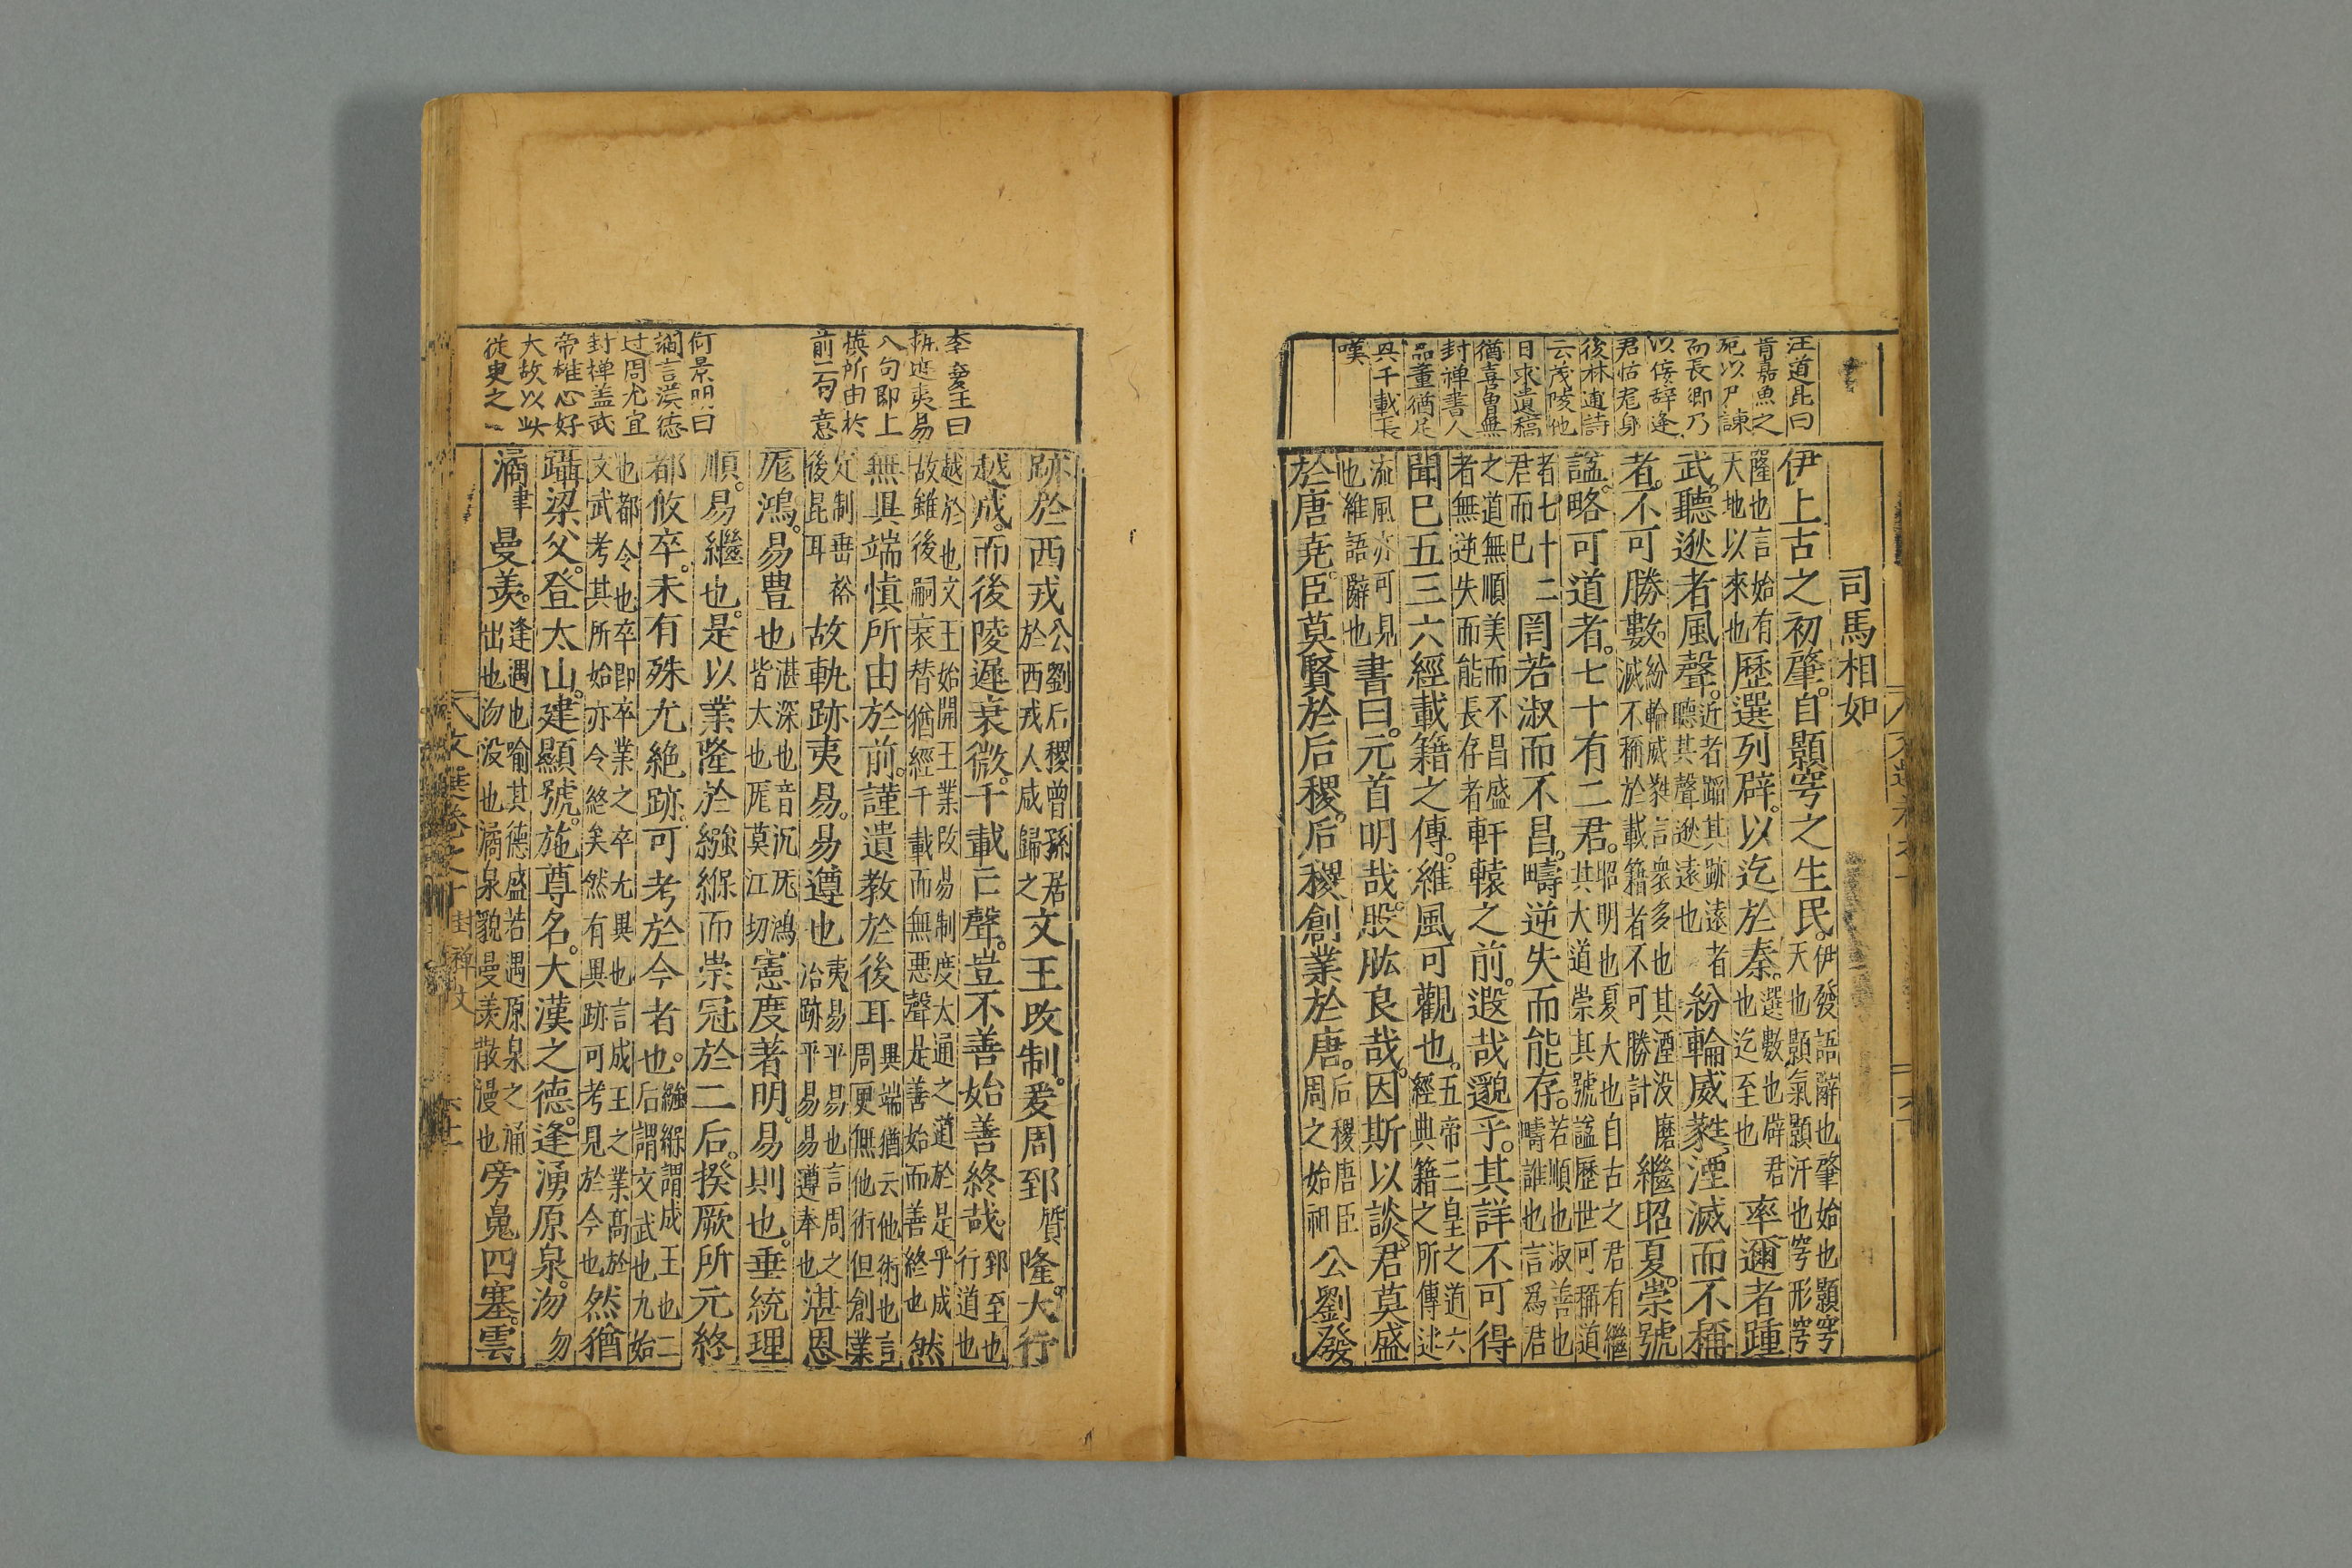 汪道昆曰
肯嘉魚之
死以尸諫
而長卿乃
以佞辭逢
君怙寵身
後林逋詩
云茂陵他
日求遺稿
猶喜曾無
封禪書人
品薰猶足
具千載長
嘆
司馬相如
伊上古之初肇自顥穹之生民伊發語辭也肇始也顥穹天也顥氣顥汗也穹形穹
隆也言始有天地以來也歷選列辟以迄於秦選數也辟君也迄至也率邇者踵
武聽逖者風聲近者蹈其跡遠者聽其聲逖遠也紛輪威蕤湮滅而不稱
者不可勝數紛輪威蕤言衆多也其湮没磨滅不稱於載籍者不可勝計繼昭夏崇號
諡略可道者七十有二君昭明也夏大也自古之君有繼其大道崇其號諡歷世可稱道
者七十二君而已罔若淑而不昌疇逆失而能存若順也淑善也疇誰也言爲君
之道無順美而不昌盛者無逆失而能長存者軒轅之前遐哉邈乎其詳不可得
聞已五三六經載籍之傳維風可觀也五帝三皇之道六經典籍之所傳述
流風亦可見也維語辭也書曰元首明哉股肱良哉因斯以談君莫盛
於唐堯臣莫賢於后稷后稷創業於唐后稷唐臣周之始祖公劉發
李愛王曰
軌迹夷易
八句即上
慎所由於
前二句意
何景明曰
過周尤宜
封禪蓋武
帝雄心好
大故以此
從臾之
跡於西戎公劉后稷曾孫居於西戎人咸歸之文王改制爰周郅質隆大行
越成而後陵遲衰微千載亡聲豈不善始善終哉郅至也行道也
越於也文王始開王業改易制度大通之道於是乎成故雖後嗣衰替猶經千載而無惡聲是善始而善終也然
無異端慎所由於前謹遺教於後耳異端猶云他術也言周更無他術但創業
定制垂裕後昆耳故軌跡夷易易遵也夷易平易也言周之治跡平易易遵奉也湛恩
厖鴻易豊也湛深也音沉厖鴻皆大也厖莫江切憲度著明易則也垂統理
順易繼也是以業隆於繈緥而崇冠於二后揆厥所元終
都攸卒未有殊尤絶跡可考於今者也繈緥謂成王也二后謂文武也九始
也都於也卒即卒業之卒尤異也言成王之業高於文武考其所始亦令終矣然有異跡可考見於今也然猶
躡梁父登太山建顯號施尊名大漢之德逢湧原泉沕勿
潏聿曼羨逢遇也喻其德盛若遇原泉之涌出也沕没也潏泉貌曼羨散漫也旁魄四塞雲
文選卷之十 封禪文